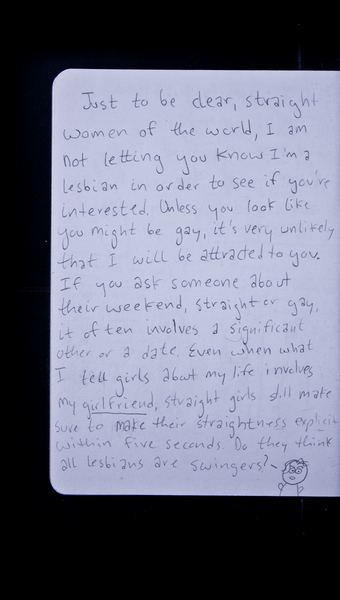 Just to be clear, straight
women of the world, I am
not letting you know I'm a
lesbian in order to see if you're
interested. Unless you look like
you might be gay, it's very unlikely
that I will be attracted to you.
If you ask someone about
their weekend, straight or gay,
it often involves a significant
other or a date. Even when what
I tell girls about my life involves
my girlfriend, straight girls still make
sure to make their straightness explicit
within five seconds. Do they think
all lesbians are swingers?